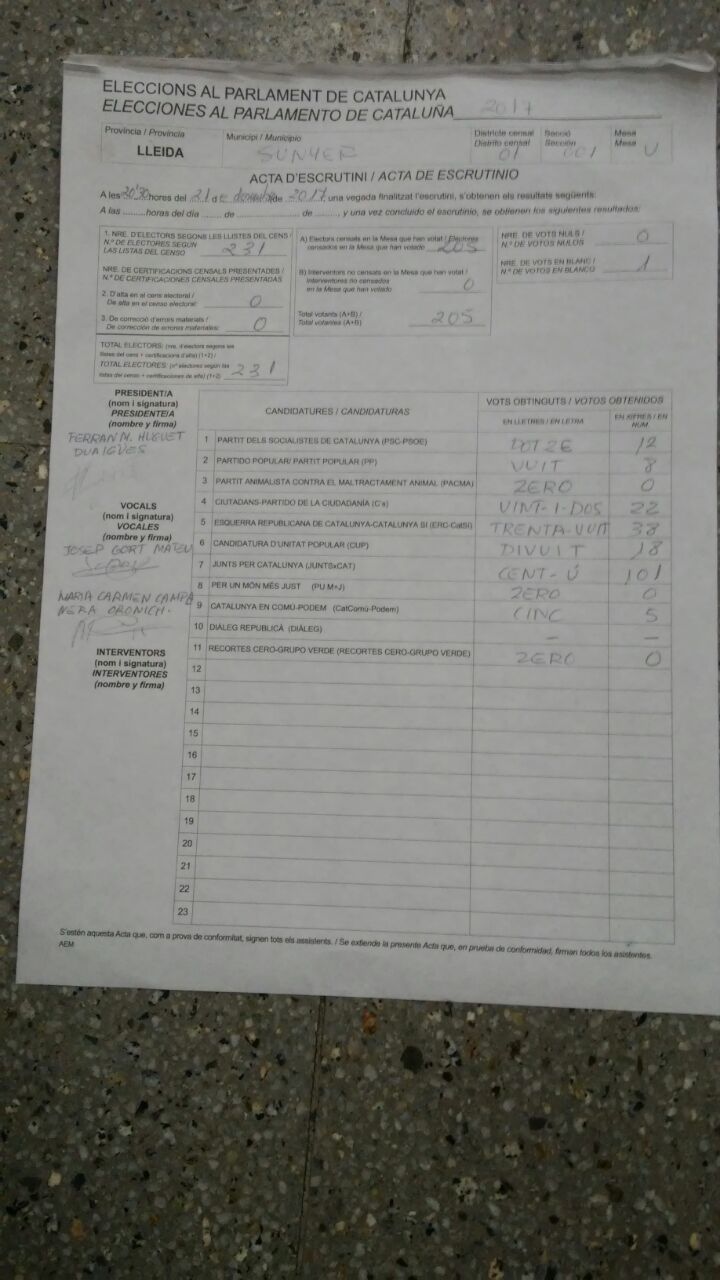 ELECCIONS AL PARLAMENT DE CATALUNYA
ELECCIONES AL PARLAMENTO DE CATALUÑA 2017
Província / Provincia
LLEIDA
Municipi / Municipio
SUNYER
Districte censal
Distrito censal
01
Secció
Sección
001
Mesa
Mesa
U
ACTA D'ESCRUTINI / ACTA DE ESCRUTINIO
A les 20'30 hores del 21 de desembre de 2017, una vegada finalitzat l'escrutini, s'obtenen els resultats següents:
A las ......... horas del día ....... de ................. de ........, y una vez concluido el escrutinio, se obtienen los siguientes resultados:
1. NRE. D'ELECTORS SEGONS LES LLISTES DEL CENS /
N.º DE ELECTORES SEGÚN
LAS LISTAS DEL CENSO 231
NRE. DE CERTIFICACIONS CENSALS PRESENTADES /
N.º DE CERTIFICACIONES CENSALES PRESENTADAS
2. D'alta en al cens electoral /
De alta en el censo electoral: 0
3. De correcció d'errors materials /
De corrección de errores materiales: 0
TOTAL ELECTORS: (nre. d'electors segons les
llistes del cens + certificacions d'alta) (1+2) /
TOTAL ELECTORES: (nº electores según las
listas del censo + certificaciones de alta) (1+2) 231
A) Electors censats en la Mesa que han votat / Electores
censados en la Mesa que han votado 205
B) Interventors no censats en la Mesa que han votat /
Interventores no censados
en la Mesa que han votado 0
Total votants (A+B) /
Total votantes (A+B) 205
NRE. DE VOTS NULS /
N.º DE VOTOS NULOS 0
NRE. DE VOTS EN BLANC /
N.º DE VOTOS EN BLANCO 1
PRESIDENT/A
(nom i signatura)
PRESIDENTE/A
(nombre y firma)
FERRAN M. HUGUET
DUAIGÜES
VOCALS
(nom i signatura)
VOCALES
(nombre y firma)
JOSEP GORT MATEU
MARIA CARMEN CAMPA
NERA ORONICH.
INTERVENTORS
(nom i signatura)
INTERVENTORES
(nombre y firma)
CANDIDATURES / CANDIDATURAS
VOTS OBTINGUTS / VOTOS OBTENIDOS
EN LLETRES / EN LETRA
EN XIFRES / EN NÚM.
1 PARTIT DELS SOCIALISTES DE CATALUNYA (PSC-PSOE) DOTZE 12
2 PARTIDO POPULAR/ PARTIT POPULAR (PP) VUIT 8
3 PARTIT ANIMALISTA CONTRA EL MALTRACTAMENT ANIMAL (PACMA) ZERO 0
4 CIUTADANS-PARTIDO DE LA CIUDADANÍA (C's) VINT-I-DOS 22
5 ESQUERRA REPUBLICANA DE CATALUNYA-CATALUNYA SÍ (ERC-CatSí) TRENTA-VUIT 38
6 CANDIDATURA D'UNITAT POPULAR (CUP) DIVUIT 18
7 JUNTS PER CATALUNYA (JUNTSxCAT) CENT-Ú 101
8 PER UN MÓN MÉS JUST (PU M+J) ZERO 0
9 CATALUNYA EN COMÚ-PODEM (CatComú-Podem) CINC 5
10 DIÀLEG REPUBLICÀ (DIÀLEG) – –
11 RECORTES CERO-GRUPO VERDE (RECORTES CERO-GRUPO VERDE) ZERO 0
12
13
14
15
16
17
18
19
20
21
22
23
S'estén aquesta Acta que, com a prova de conformitat, signen tots els assistents. / Se extiende la presente Acta que, en prueba de conformidad, firman todos los asistentes.
AEM